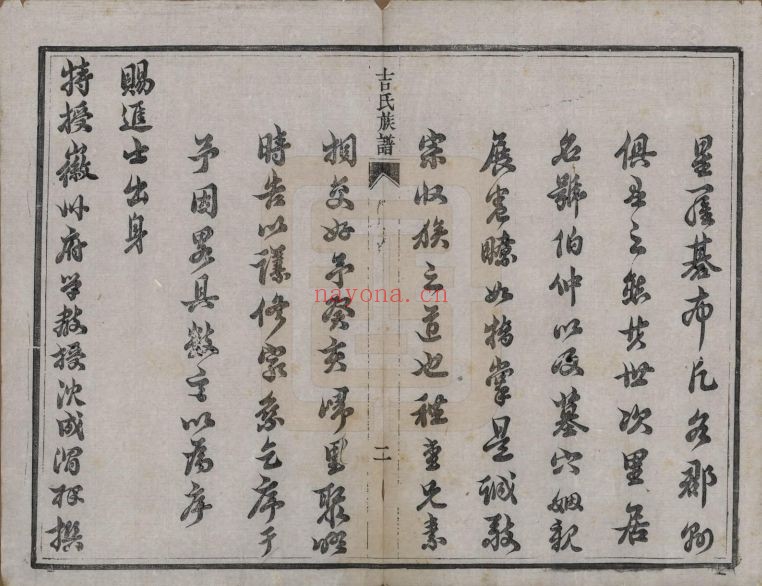 星羅碁布凡各郡別
俱至之紙其世次里居
名號伯仲以及墓穴姻親
展卷瞭如指掌是誠敬
宗收族之道也稚圭兄素
相交好予癸亥歸里聚晤
時告以謹修家系乞序于
予因略具數言以為序
賜進士出身
特授徽州府學教授沈成渭拜撰
吉氏族譜
二
nayona.cn